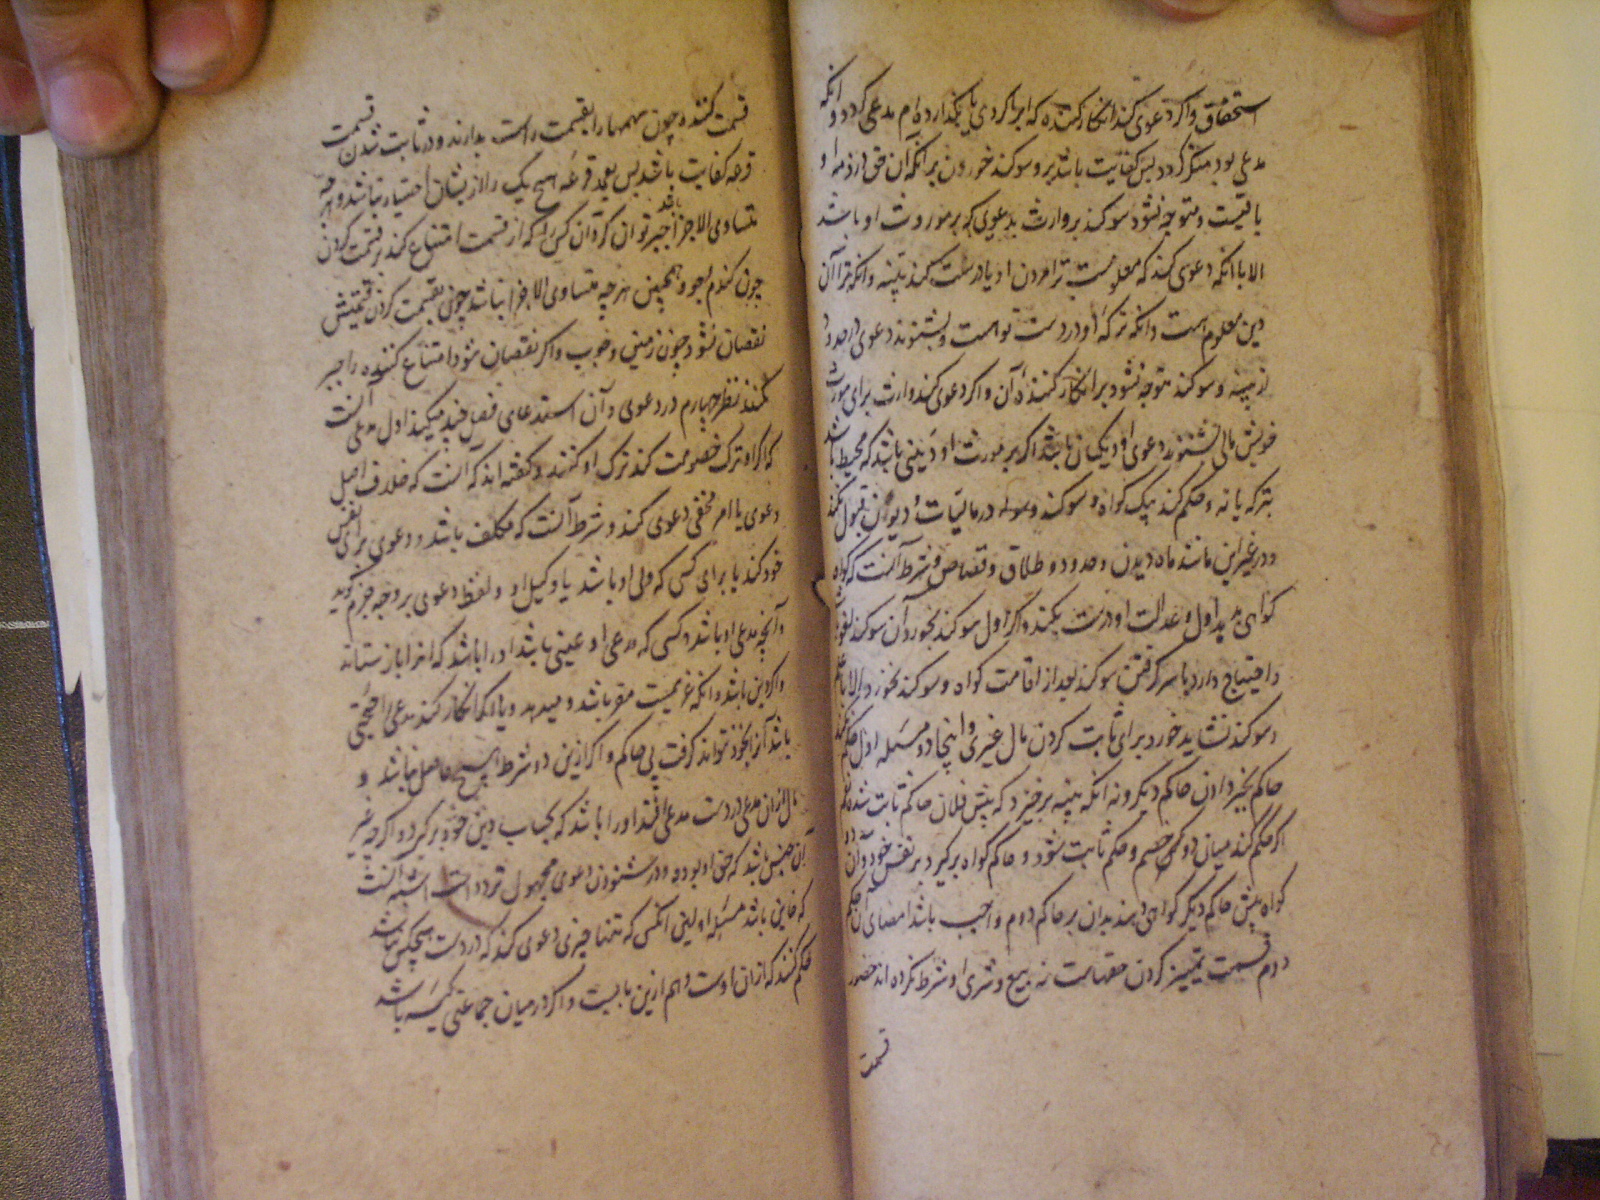 استحقاق و اگر دعوی کند انکار کننده که ابرا کردی یا بگذارده ام مدعی گردد و انکه
مدعی بود منکر گردد پس کفایت باشد برو سوکند خوردن بر انکه آن حق در ذمه او
باقیست و متوجه نشود سوکند بر وارث بدعوی که بر موروث او باشد
الا با انکه دعوی کند که معلومست ترا مردن او یا درست کند ببینه و انکه ترا آن
دین معلوم است و انکه ترکهٔ او در دست تو است و بشنوند دعوی در حدود
از بینه و سوکند متوجه نشود بر انکار کنندهٔ آن و اگر دعوی کند وارث برای مورث
خویش مالی بشنوند دعوی او و یکسان باشد اگر بر مورث او دینی باشد که محیط باشد
بترکه یا نه و حکم کند بیک گواه و سوکند در مالیات و دیون قبول کند
و در غیر این مانند ماه دیدن و حدود و طلاق و قصاص و شرط آنست که گواه
گواهی دهد اول و عدالت او درست بکند و اگر اول سوکند بخورد آن سوکند لغو بود
و احتیاج دارد با سر گرفتن سوکند بعد از اقامت گواه و سوکند نخورد الا با علم
و سوکند نشاید خورد برای ثابت کردن مال غیری و اینجا دو مسئله اول حکم نکند
حاکم بخبر دادن حاکم دیگر و نه انکه بینه برخیزد که پیش فلان حاکم ثابت شده
اگر حکم کند میان دو خصم و حکم ثابت شود و حاکم گواه برگیرد بر نفس خود و آن دو
گواه پیش حاکم دیگر گواهی دهند بدان بر حاکم دوم واجب باشد امضای آن حکم
دوم قسمت تمییز کردن حقهاست نه بیع و شری و شرط نکرده اند حضور
قسمت
قسمت کننده چون سهمها را بقیمت راست بدارند و در ثابت شدن قسمت
قرعه کفایت باشد پس بعد قرعه هیچ یک را از ایشان اختیار نباشد و هر چه
متساوی الاجزا باشد جبر توان کرد آن کس را که از قسمت امتناع کند بر قسمت کردن
چون کندم و جو و همچنین هر چه متساوی الاجزا نباشد چون بقسمت کردن قیمتش
نقصان نشود چون زمین و چوب و اگر نقصان شود امتناع کننده را جبر
نکنند نظر چهارم در دعوی و آن استدعای فصل چند میکند اول مدعی آنست
که اگر او ترک خصومت کند ترک او کنند و گفته اند که آنست که خلاف اصل
دعوی یا امر مخفی دعوی کند و شرط آنست که مکلف باشد و دعوی برای نفس
خود کند یا برای کسی که ولی او باشد یا وکیل او و لفظ دعوی بر وجه جزم گوید
و آنچه مدعی او باشد و کسی که مدعی او عینی باشد او را باشد که انرا باز ستاند
و اگر دین باشد و انکه غریمست مقر باشد و میدهد و یا انکه انکار کند مدعی را حجتی
باشد آنرا بخود نتواند گرفت بی حاکم و اگر ازین دو شرط هیچ حاصل نباشد و
مال از ان مدعی در دست مدعی افتد او را باشد که بحساب دین خود برگیرد و اگر چه غیر
آن جنس باشد که حق او بوده و در شنودن دعوی مجهول تردد است اشبه آنست
که جاین باشد مسئله اولین انکس که تنها چیزی دعوی کند که در دست هیچکس نباشد
حکم کنند که از ان اوست و هم ازین بابست و اگر در میان جماعتی کیسه باشد